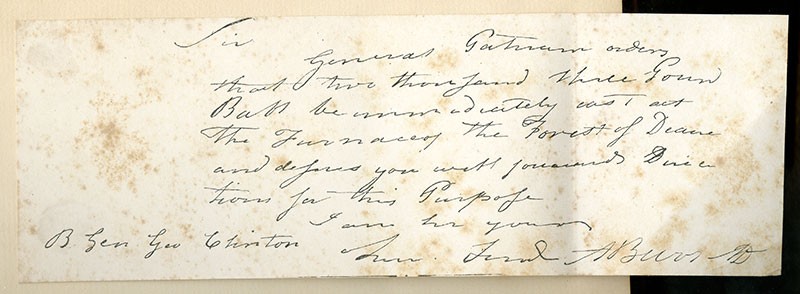 Sir
General Putnam orders
that two thousand three Poun
Ball be immediately cast at
the Furnace of the Forest of Deane
and desires you will forward Direc
tions for this Purpose
I am Sir yours
B. Gen Geo Clinton ABurr AD